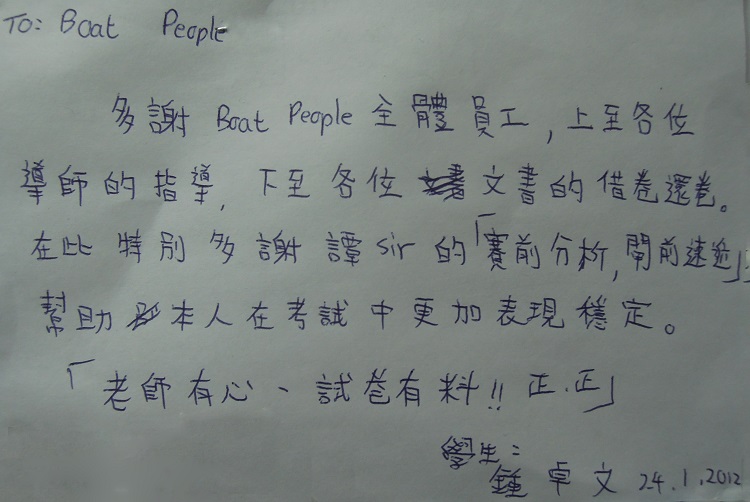 To: Boat People
多謝 Boat People 全體員工，上至各位
導師的指導，下至各位文書的借卷還卷。
在此特別多謝譚sir的「賽前分析，閘前速遞」
幫助本人在考試中更加表現穩定。
「老師有心、試卷有料!! 正.正」
學生：
鍾卓文 24.1.2012